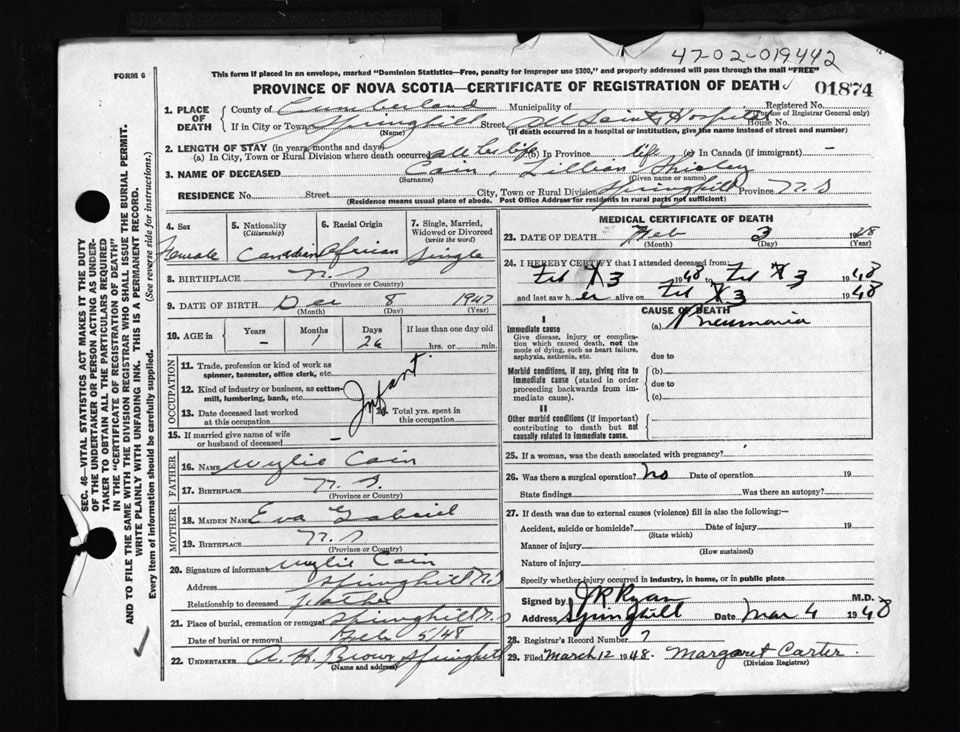 47-02-019442
FORM 6
This form if placed in an envelope, marked "Dominion Statistics—Free, penalty for improper use $300," and properly addressed will pass through the mail "FREE"
PROVINCE OF NOVA SCOTIA—CERTIFICATE OF REGISTRATION OF DEATH
01874
1. PLACE OF DEATH
County of Cumberland Municipality of Registered No.
(For use of Registrar General only)
If in City or Town Springhill Street All Saints Hospital House No.
(Name) (If death occurred in a hospital or institution, give the name instead of street and number)
2. LENGTH OF STAY (in years, months and days)
(a) In City, Town or Rural Division where death occurred all her life (b) In Province life (c) In Canada (if immigrant) —
3. NAME OF DECEASED Cain, Lillian Shirley
(Surname) (Given name or names)
RESIDENCE No. Street City, Town or Rural Division Springhill Province N.S
(Residence means usual place of abode. Post Office Address for residents in rural parts not sufficient)
4. Sex
Female
5. Nationality
(Citizenship)
Canadian
6. Racial Origin
African
7. Single, Married,
Widowed or Divorced
(write the word)
Single
8. BIRTHPLACE N.S
(Province or Country)
9. DATE OF BIRTH Dec 8 1947
(Month) (Day) (Year)
10. AGE in
Years Months Days If less than one day old
— 1 26 hrs. or min.
OCCUPATION
11. Trade, profession or kind of work as
spinner, teamster, office clerk, etc.
12. Kind of industry or business, as cotton-
mill, lumbering, bank, etc.
Infant
13. Date deceased last worked
at this occupation
14. Total yrs. spent in
this occupation
15. If married give name of wife
or husband of deceased —
FATHER
16. NAME Wylie Cain
17. BIRTHPLACE N.S.
(Province or Country)
MOTHER
18. MAIDEN NAME Eva Gabriel
19. BIRTHPLACE N.S
(Province or Country)
20. Signature of informant Wylie Cain
Address Springhill N.S
Relationship to deceased Father
21. Place of burial, cremation or removal Springhill N.S
Date of burial or removal Feb 5/48
22. UNDERTAKER A. H. Brown Springhill
(Name and address)
MEDICAL CERTIFICATE OF DEATH
23. DATE OF DEATH Feb 3 1948
(Month) (Day) (Year)
24. I HEREBY CERTIFY that I attended deceased from
Feb 3 1948 to Feb 3 1948
and last saw her alive on Feb 3 1948
CAUSE OF DEATH
I
Immediate cause
Give disease, injury or complica-
tion which caused death, not the
mode of dying, such as heart failure,
asphyxia, asthenia, etc.
(a) Pneumonia
due to
Morbid conditions, if any, giving rise to
immediate cause (stated in order
proceeding backwards from im-
mediate cause).
(b)
due to
(c)
II
Other morbid conditions (if important)
contributing to death but not
causally related to immediate cause.
25. If a woman, was the death associated with pregnancy?
26. Was there a surgical operation? No Date of operation 19
State findings Was there an autopsy?
27. If death was due to external causes (violence) fill in also the following:—
Accident, suicide or homicide? Date of injury 19
(State which)
Manner of injury
(How sustained)
Nature of injury
Specify whether injury occurred in industry, in home, or in public place
Signed by J R Ryan M.D.
Address Springhill Date Mar 4 1948
28. Registrar's Record Number 7
29. Filed March 12 1948. Margaret Carter.
(Division Registrar)
SEC. 46—VITAL STATISTICS ACT MAKES IT THE DUTY
OF THE UNDERTAKER OR PERSON ACTING AS UNDER-
TAKER TO OBTAIN ALL THE PARTICULARS REQUIRED
IN THE "CERTIFICATE OF REGISTRATION OF DEATH"
AND TO FILE THE SAME WITH THE DIVISION REGISTRAR WHO SHALL ISSUE THE BURIAL PERMIT.
WRITE PLAINLY WITH UNFADING INK. THIS IS A PERMANENT RECORD.
Every item of information should be carefully supplied. (See reverse side for instructions.)